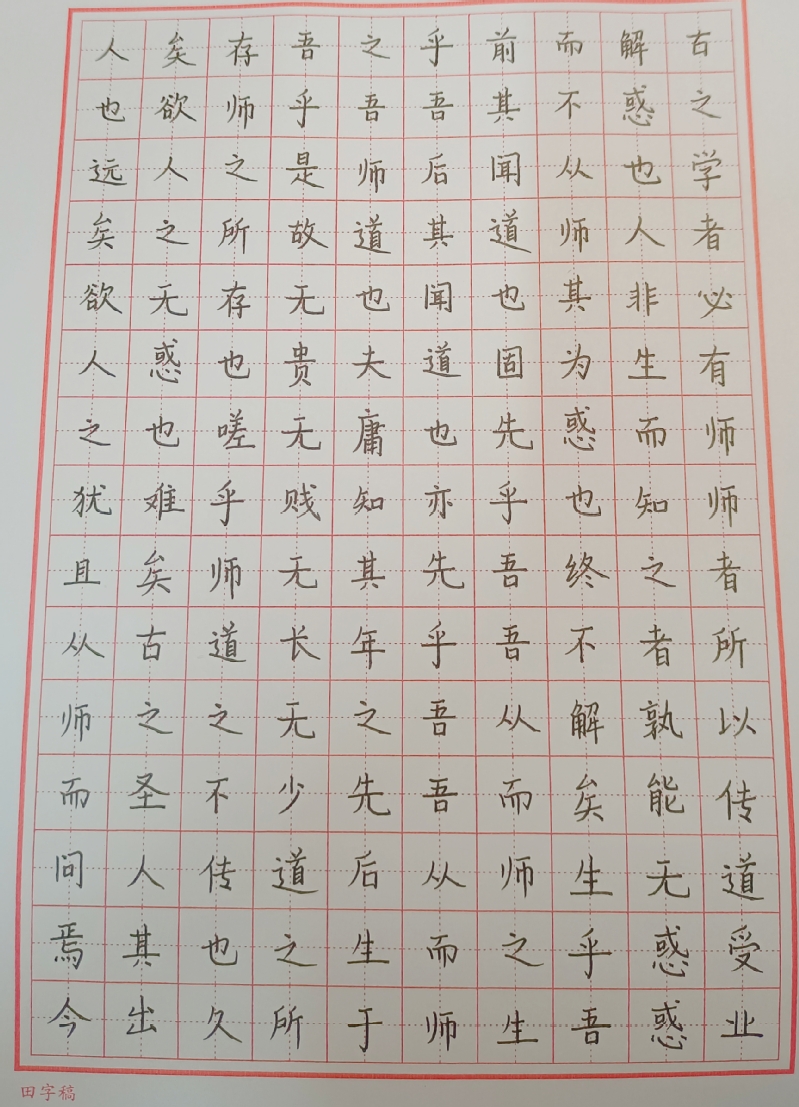 古之学者必有师师者所以传道受业
解惑也人非生而知之者孰能无惑惑
而不从师其为惑也终不解矣生乎吾
前其闻道也固先乎吾吾从而师之生
乎吾后其闻道也亦先乎吾吾从而师
之吾师道也夫庸知其年之先后生于
吾乎是故无贵无贱无长无少道之所
存师之所存也嗟乎师道之不传也久
矣欲人之无惑也难矣古之圣人其出
人也远矣欲人之犹且从师而问焉今
田字稿